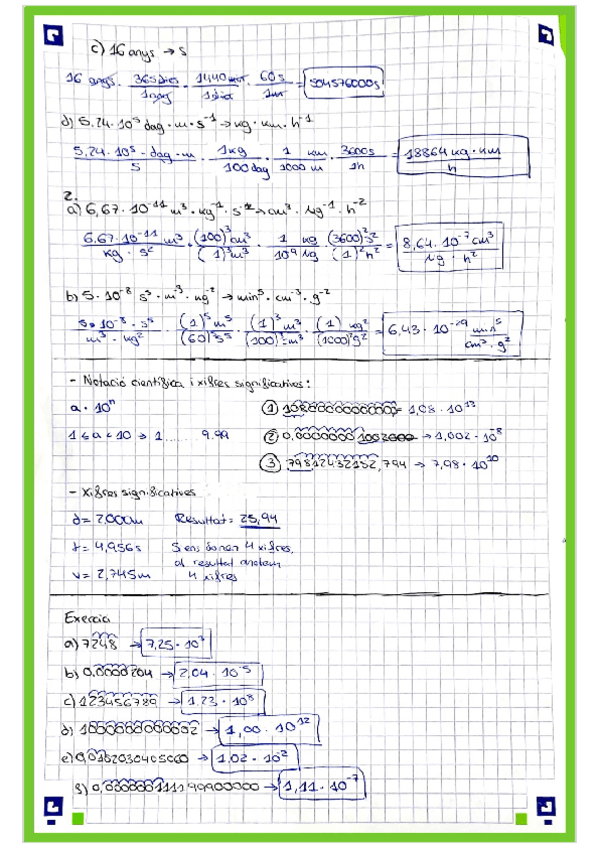 c) 16 anys → s
16 anys · 365 dies / 1 any · 1440 min / 1 dia · 60 s / 1 m = 504576000 s
d) 5,24 · 10⁵ dag · m · s⁻¹ → kg · km · h⁻¹
5,24 · 10⁵ · dag · m / s · 1 kg / 100 dag · 1 km / 1000 m · 3600 s / 1 h = 18864 kg · km / h
2.
a) 6,67 · 10⁻¹¹ m³ · kg⁻¹ · s⁻² → cm³ · µg⁻¹ · h⁻²
6,67 · 10⁻¹¹ m³ / kg · s² · (100)³ cm³ / (1)³ m³ · 1 kg / 10⁹ µg · (3600)² s² / (1)² h² = 8,64 · 10⁻⁷ cm³ / µg · h²
b) 5 · 10⁻⁸ s⁵ · m⁻³ · kg⁻² → min⁵ · cm⁻³ · g⁻²
5 · 10⁻⁸ · s⁵ / m³ · kg² · (1)⁵ m⁵ / (60)⁵ s⁵ · (1)³ m³ / (100)³ m³ · (1) kg² / (1000)² g² = 6,43 · 10⁻²⁹ min⁵ / cm³ · g²
- Notació científica i xifres significatives:
a · 10ⁿ
1 ≤ a < 10 → 1 ....... 9.99
① 10800000000000 = 1,08 · 10¹³
② 0,00000001002000 → 1,002 · 10⁻⁸
③ 79812432152,794 → 7,98 · 10¹⁰
- Xifres significatives
d = 2,00 cm Resultat = 25,94
t = 4,956 s Si ens donen 4 xifres,
al resultat anotem
v = 2,745 m 4 xifres
Exercici
a) 7248 → 7,25 · 10³
b) 0,0000204 → 2,04 · 10⁻⁵
c) 123456789 → 1,23 · 10⁸
d) 1000000000002 → 1,00 · 10¹²
e) 0,0102030405060 → 1,02 · 10⁻²
g) 0,00000011119990000 → 1,11 · 10⁻⁷